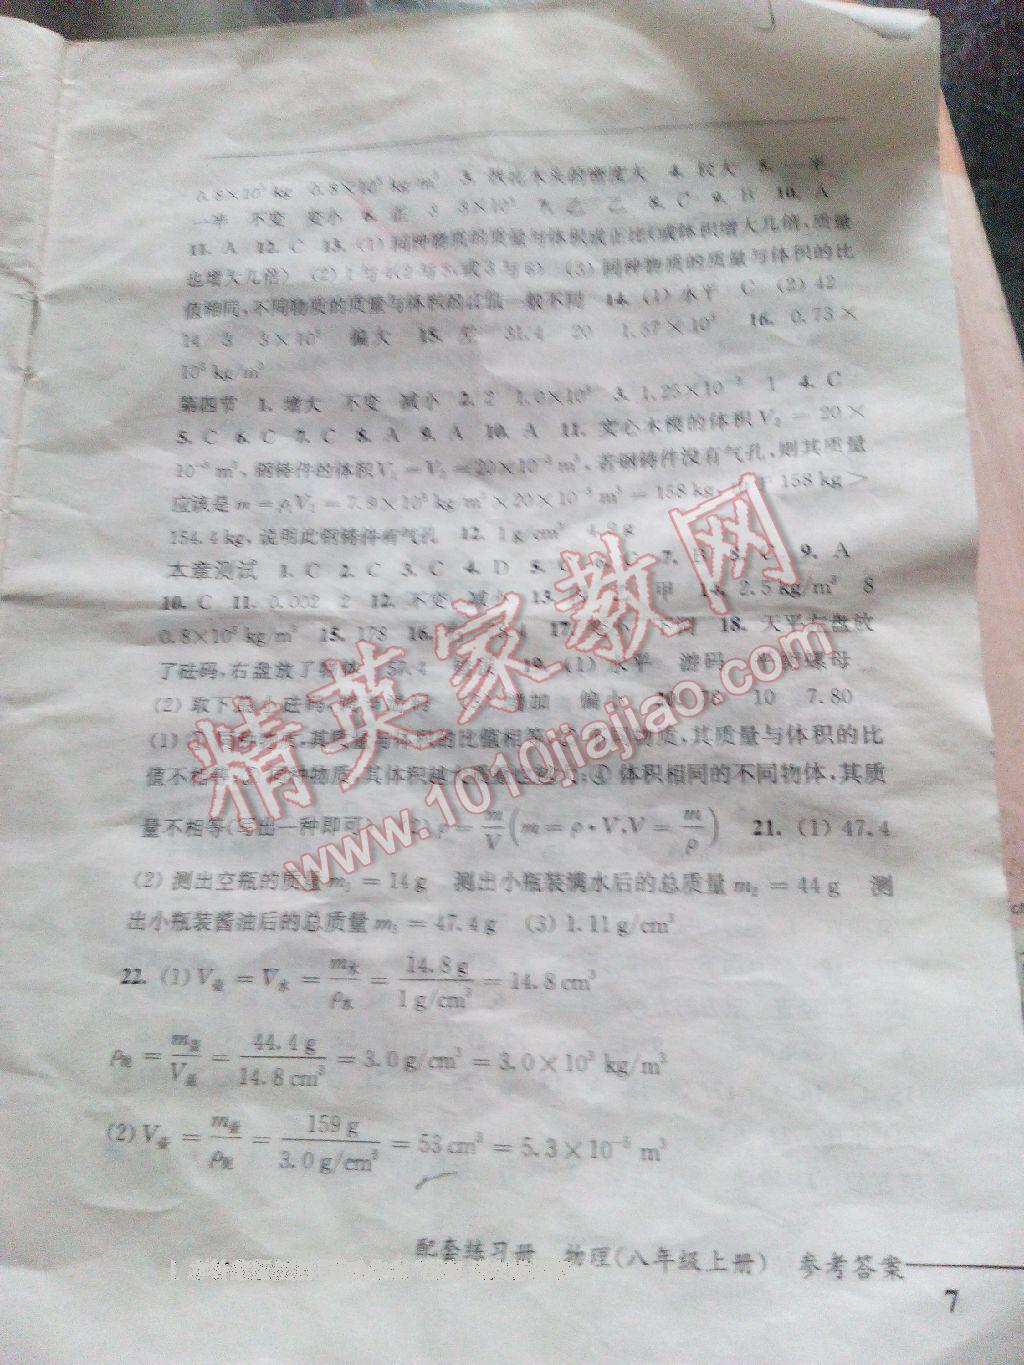 0.8×10³ kg 0.8×10³ kg/m³ 3. 铁比木头的密度大 4. 较大 5. 一半
一半 不变 变小 6. 正 3 3×10³ 7. 乙 乙 8. C 9. B 10. A
11. A 12. C 13. (1) 同种物质的质量与体积成正比(或体积增大几倍,质量
也增大几倍) (2) 1与4(2与5,或3与6) (3) 同种物质的质量与体积的比
值相同,不同物质的质量与体积的比值一般不同 14. (1) 水平 C (2) 42
14 3 3×10³ 偏大 15. 左 31.4 20 1.57×10³ 16. 0.73×
10³ kg/m³
第四节 1. 增大 不变 减小 2. 2 1.0×10³ 3. 1.25×10⁻³ 1 4. C
5. C 6. C 7. C 8. A 9. A 10. A 11. 实心木模的体积V₂=20×
10⁻³ m³,钢铸件的体积V₁=V₂=20×10⁻³ m³,若钢铸件没有气孔,则其质量
应该是m=ρ₁V₂=7.9×10³ kg/m³×20×10⁻³ m³=158 kg, 158 kg>
154.4 kg,说明此钢铸件有气孔 12. 1 g/cm³ 4.8 g
本章测试 1. C 2. C 3. C 4. D 5. 6. C 7. B 8. 9. A
10. C 11. 0.002 2 12. 不变 减小 13. 甲 14. 2.5 kg/m³ 8
0.8×10³ kg/m³ 15. 178 16. 17. 不同 18. 天平左盘放
了砝码,右盘放了物体 57.4 19. (1) 水平 游码 平衡螺母
(2) 取下最小砝码, 游码 (3) 增加 偏小 20. 78 10 7.80
(1) ① 同种物质,其质量与体积的比值相等 不同物质,其质量与体积的比
值不相等;③ 同种物质,其体积越大 ④ 体积相同的不同物体,其质
量不相等(写出一种即可) (2) ρ=m/V(m=ρ·V,V=m/ρ) 21. (1) 47.4
(2) 测出空瓶的质量m₁=14 g 测出小瓶装满水后的总质量m₂=44 g 测
出小瓶装酱油后的总质量m₃=47.4 g (3) 1.11 g/cm³
22. (1) V=V水=m水/ρ水=14.8 g/1 g/cm³=14.8 cm³
ρ=m/V=44.4 g/14.8 cm³=3.0 g/cm³=3.0×10³ kg/m³
(2) V=m/ρ=159 g/3.0 g/cm³=53 cm³=5.3×10⁻⁵ m³
配套练习册 物理(八年级上册) 参考答案
7
精英家教网
www.1010jiajiao.com